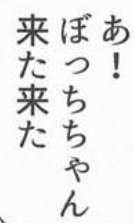 あ！
ぼっちちゃん
来た来た